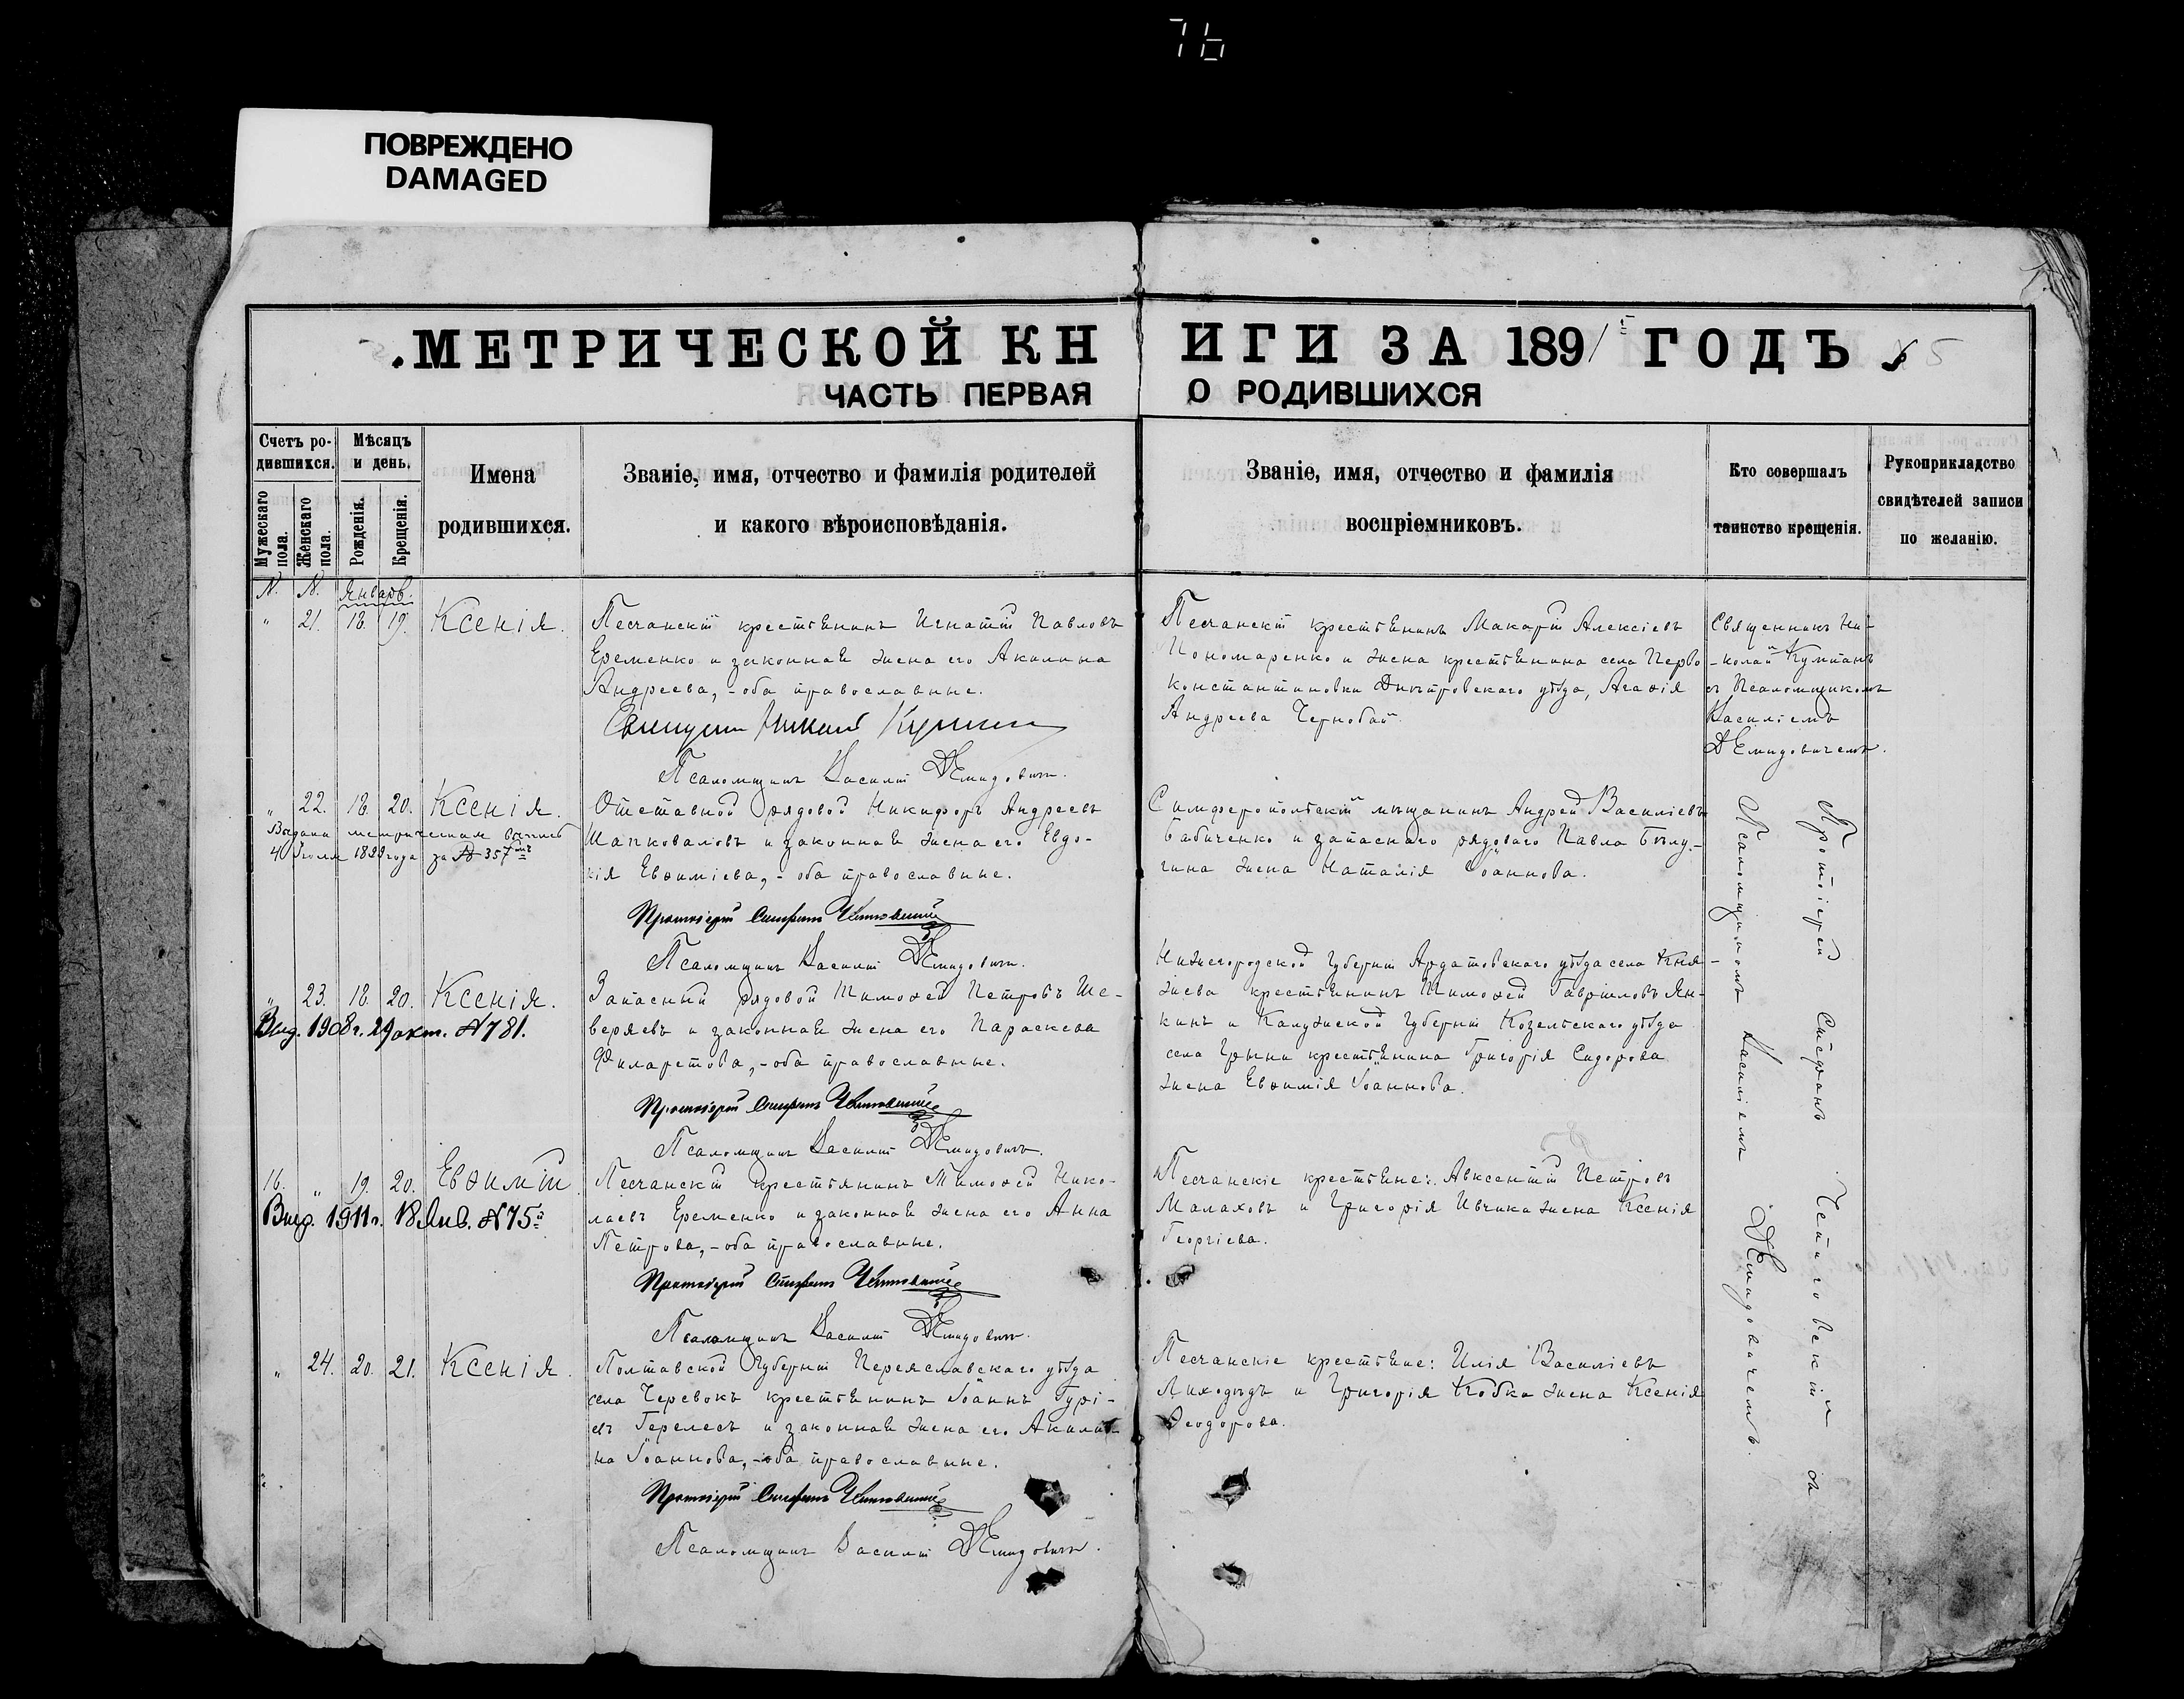 76
ПОВРЕЖДЕНО
DAMAGED
МЕТРИЧЕСКОЙ КНИГИ ЗА 1891 ГОДЪ
5
ЧАСТЬ ПЕРВАЯ О РОДИВШИХСЯ
Счетъ ро-
дившихся.
Мужескаго пола.
Женскаго пола.
Мѣсяцъ
и день.
Рожденія.
Крещенія.
Имена
родившихся.
Званіе, имя, отчество и фамилія родителей
и какого вѣроисповѣданія.
Званіе, имя, отчество и фамилія
воспріемниковъ.
Кто совершалъ
таинство крещенія.
Рукоприкладство
свидѣтелей записи
по желанію.
N. N. Январь.
" 21. 18. 19. Ксенія.
Песчанскій крестьянинъ Игнатій Павловъ
Еременко и законная жена его Акилина
Андреева, - оба православные.
Священникъ Николай
Псаломщикъ Василій Демидовичъ.
Песчанскій крестьянинъ Макарій Алексіевъ
Пономаренко и жена крестьянина села Перво
константиновки Днѣпровскаго уѣзда, Агаѳія
Андреева Чернобай.
Священникъ Ни-
-колай
съ Псаломщикомъ
Василіемъ
Демидовичемъ.
" 22. 18. 20. Ксенія.
Выдана метрическая выпись
4 Іюля 1899 года за № 357мъ
Отставной рядовой Никифоръ Андреевъ
Шапковаловъ и законная жена его Евдо-
кія Евѳиміева, - оба православные.
Протоіерей Стефанъ
Псаломщикъ Василій Демидовичъ.
Симферопольскій мѣщанинъ Андрей Василіевъ
Бабиченко и запаснаго рядоваго Павла Бѣлу-
гина жена Наталія Іоаннова.
" 23. 18. 20. Ксенія.
Выд. 1908 г. 29 окт. № 781.
Запасный рядовой Тимоѳей Петровъ Ше-
веряевъ и законная жена его Параскева
Филаретова, - оба православные.
Протоіерей Стефанъ
Псаломщикъ Василій Демидовичъ.
Нижегородской Губерніи Ардатовскаго уѣзда села Кня-
жева крестьянинъ Тимоѳей Гавріиловъ Ян-
кинъ и Калужской Губерніи Козельскаго уѣзда
села Грыни крестьянина Григорія Сидорова
жена Евѳимія Іоаннова.
16. " 19. 20. Евѳимій
Выд. 1911 г. 18 Янв. № 75
Песчанскій крестьянинъ Тимоѳей Нико-
лаевъ Еременко и законная жена его Анна
Петрова, - оба православные.
Протоіерей Стефанъ
Псаломщикъ Василій Демидовичъ.
Песчанскіе крестьяне: Авксентій Петровъ
Малаховъ и Григорія Ивчика жена Ксенія
Георгіева.
" 24. 20. 21. Ксенія.
Полтавской Губерніи Переяславскаго уѣзда
села Черевокъ крестьянинъ Іоаннъ Гурі-
евъ Герелесъ и законная жена его Акили-
на Іоаннова, - оба православные.
Протоіерей Стефанъ
Псаломщикъ Василій Демидовичъ.
Песчанскіе крестьяне: Илія Василіевъ
Лиходѣдъ и Григорія Кобка жена Ксенія
Ѳеодорова.
Протоіерей Стефанъ съ
Псаломщикомъ Василіемъ Демидовичемъ.